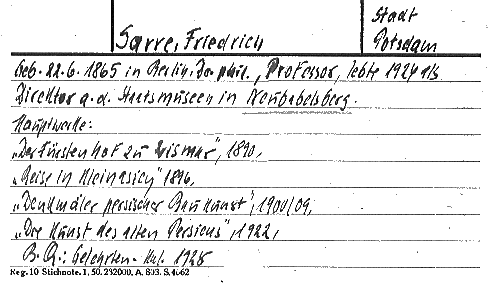 Stadt
Sarre, Friedrich
Potsdam
Geb. 22.6.1865 in Berlin. Dr. phil., Professor, lebte 1924 als
Direktor a.d. Staatsmuseen in Neubabelsberg.
Hauptwerke:
„Der Fürstenhof zu Wismar", 1890,
„Reise in Kleinasien" 1896,
„Denkmäler persischer Baukunst", 1901/09,
„Die Kunst des alten Persiens", 1922,
B.Q.: Gelehrten-Kal. 1925
Reg. 10 Stichnote. 1, 50. 232000. A. 803. S. 4662